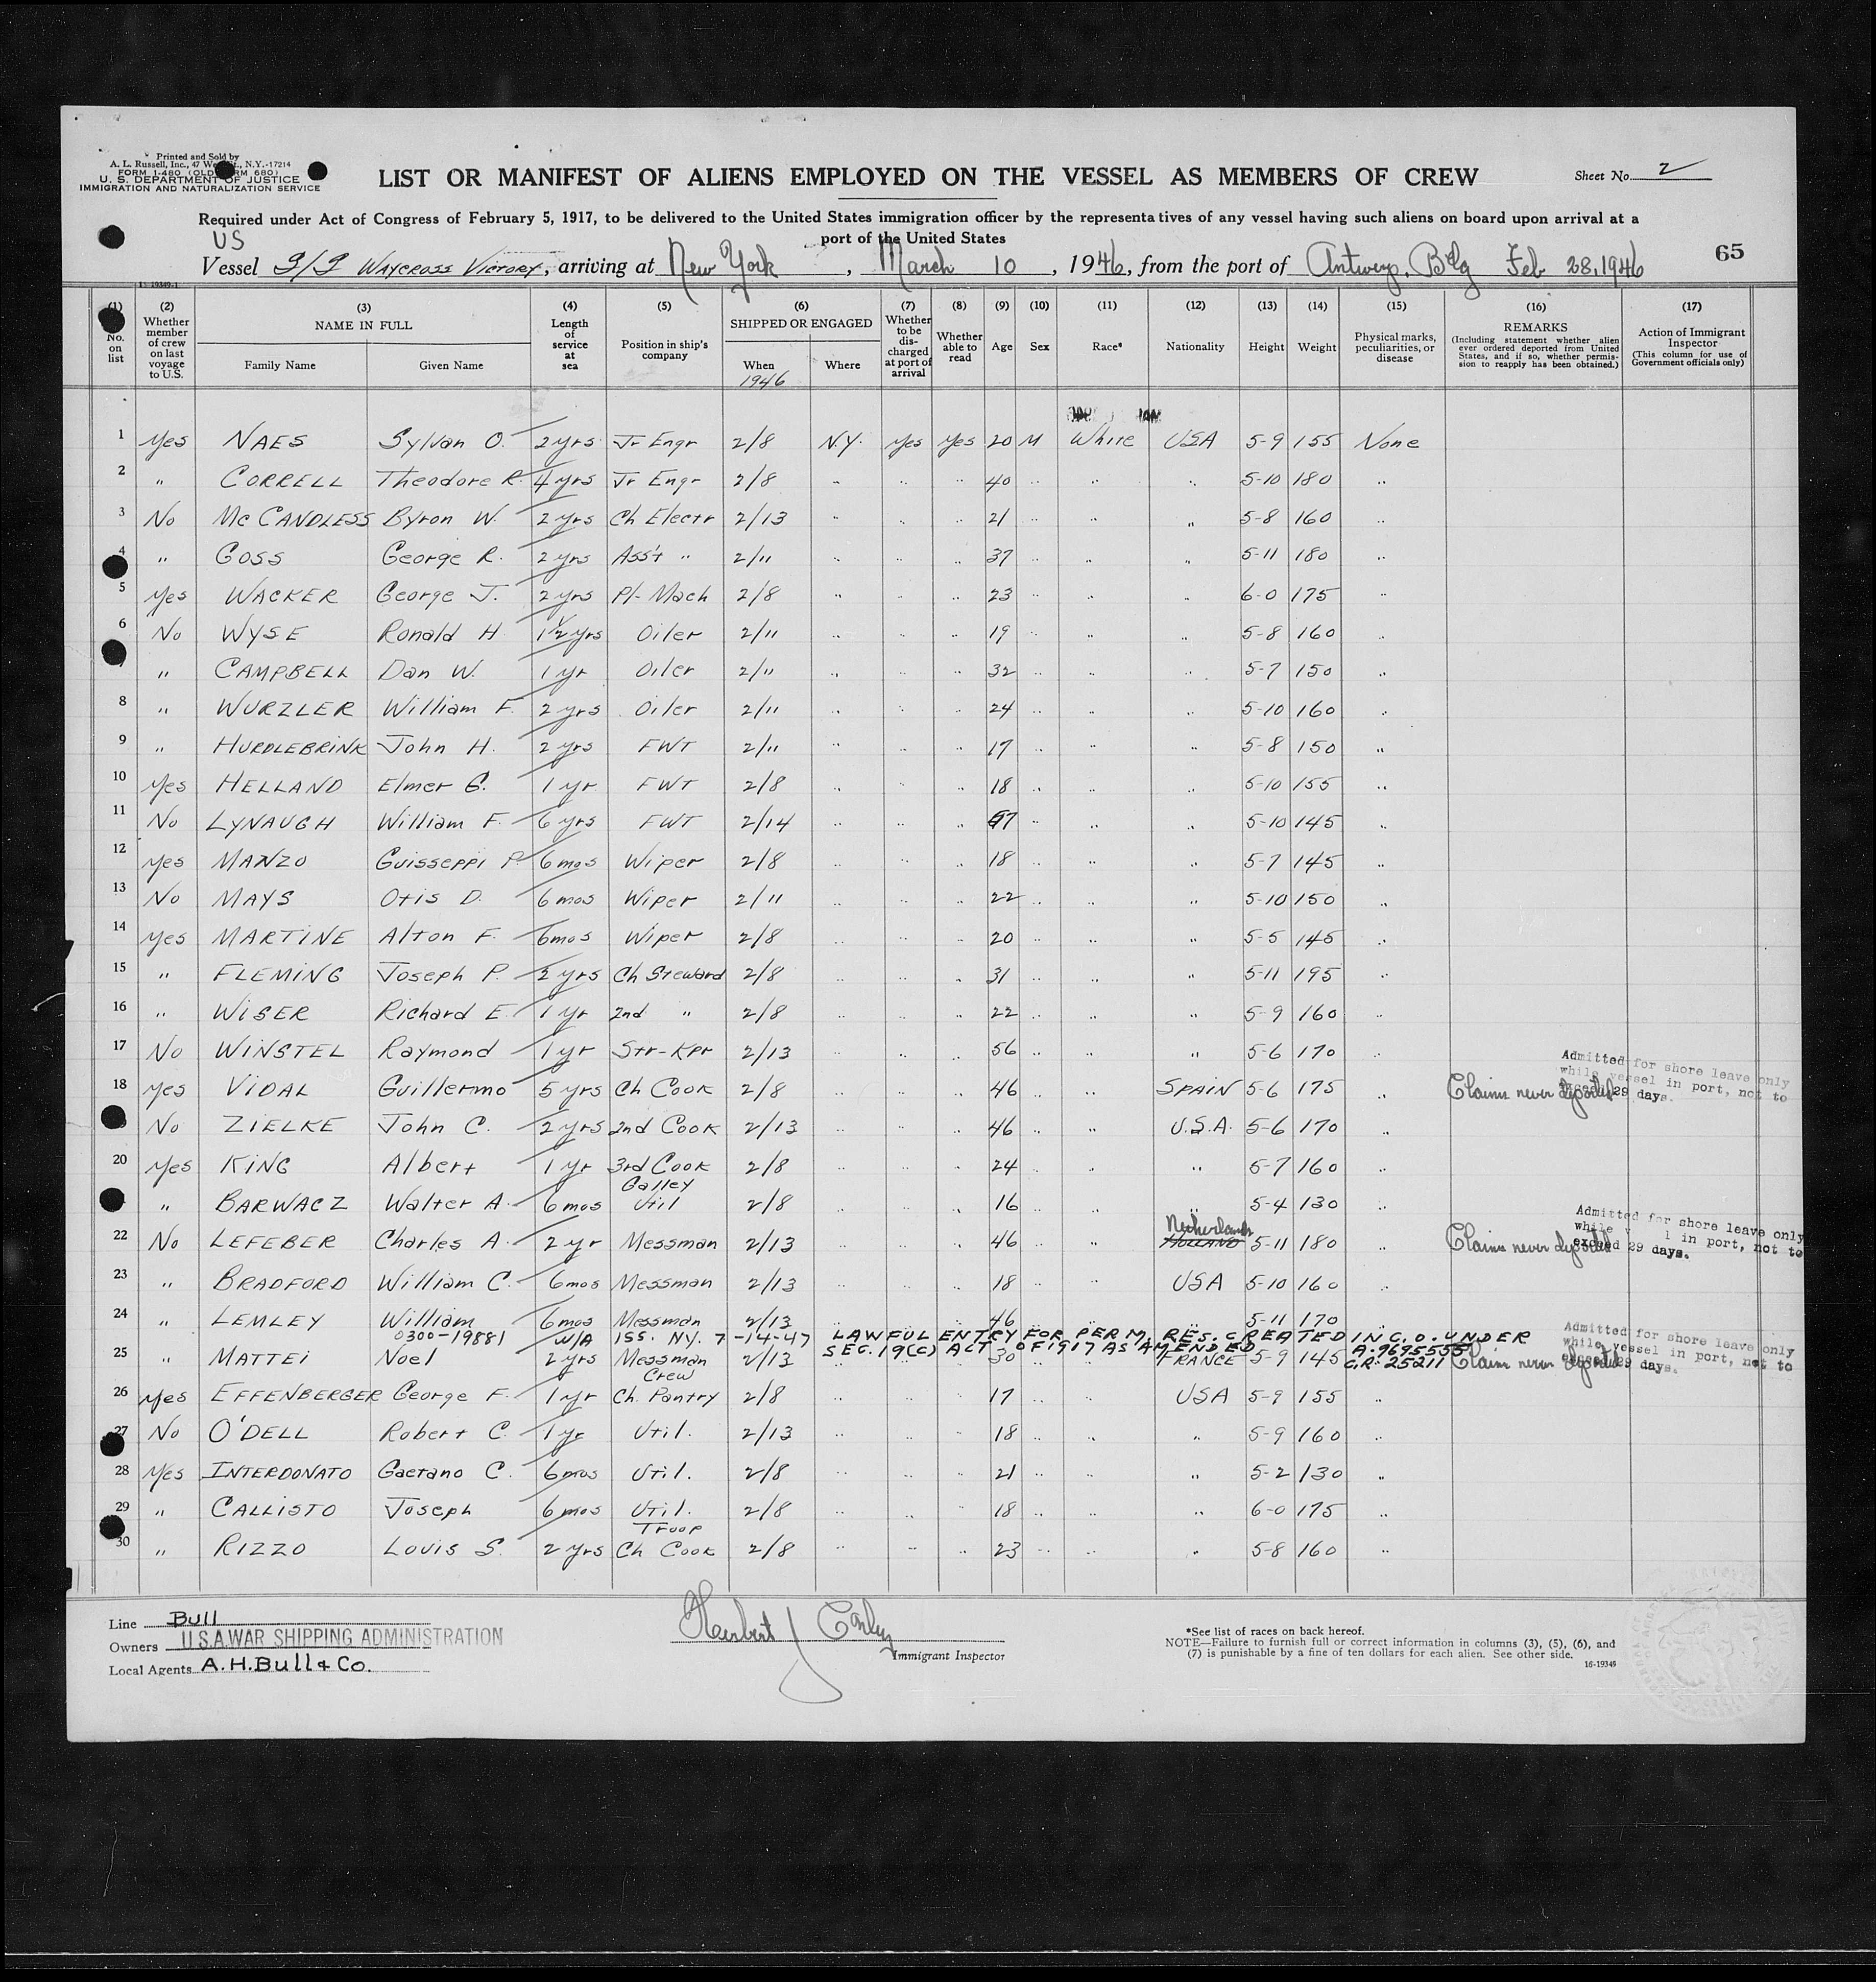 Printed and Sold by
A. L. Russell, Inc., 47 St., N.Y.-17214
FORM I-480 (OLD FORM 680)
U. S. DEPARTMENT OF JUSTICE
IMMIGRATION AND NATURALIZATION SERVICE
LIST OR MANIFEST OF ALIENS EMPLOYED ON THE VESSEL AS MEMBERS OF CREW
Sheet No. 2
Required under Act of Congress of February 5, 1917, to be delivered to the United States immigration officer by the representatives of any vessel having such aliens on board upon arrival at a
port of the United States
US
65
Vessel S/S WAYCROSS VICTORY, arriving at New York, March 10, 1946, from the port of Antwerp, Belg Feb 28, 1946
(1) No. on list
(2) Whether member of crew on last voyage to U.S.
(3) NAME IN FULL Family Name Given Name
(4) Length of service at sea
(5) Position in ship's company
(6) SHIPPED OR ENGAGED When 1946 Where
(7) Whether to be discharged at port of arrival
(8) Whether able to read
(9) Age
(10) Sex
(11) Race*
(12) Nationality
(13) Height
(14) Weight
(15) Physical marks, peculiarities, or disease
(16) REMARKS (Including statement whether alien ever ordered deported from United States, and if so, whether permission to reapply has been obtained.)
(17) Action of Immigrant Inspector (This column for use of Government officials only)
1 Yes NAES Sylvan O. 2 yrs Jr Engr 2/8 N.Y. Yes Yes 20 M White USA 5-9 155 None
2 " CORRELL Theodore R. 4 yrs Jr Engr 2/8 " " " 40 " " " 5-10 180 "
3 No McCANDLESS Byron W. 2 yrs Ch Electr 2/13 " " " 21 " " " 5-8 160 "
4 " GOSS George R. 2 yrs Ass't " 2/11 " " " 37 " " " 5-11 180 "
5 Yes WACKER George J. 2 yrs Pl- Mach 2/8 " " " 23 " " " 6-0 175 "
6 No WYSE Ronald H 1 1/2 yrs Oiler 2/11 " " " 19 " " " 5-8 160 "
" CAMPBELL Dan W. 1 yr Oiler 2/11 " " " 32 " " " 5-7 150 "
8 " WURZLER William F. 2 yrs Oiler 2/11 " " " 24 " " " 5-10 160 "
9 " HURDLEBRINK John H. 2 yrs FWT 2/11 " " " 17 " " " 5-8 150 "
10 Yes HELLAND Elmer G. 1 yr FWT 2/8 " " " 18 " " " 5-10 155 "
11 No LYNAUGH William F. 6 yrs FWT 2/14 " " " " " " 5-10 145 "
12 Yes MANZO Guisseppi P. 6 mos Wiper 2/8 " " " 18 " " " 5-7 145 "
13 No MAYS Otis D. 6 mos Wiper 2/11 " " " 22 " " " 5-10 150 "
14 Yes MARTINE Alton F. 6mos Wiper 2/8 " " " 20 " " " 5-5 145 "
15 " FLEMING Joseph P. 2 yrs Ch Steward 2/8 " " " 31 " " " 5-11 195 "
16 " WISER Richard E. 1 yr 2nd " 2/8 " " " 22 " " " 5-9 160 "
17 No WINSTEL Raymond 1 yr Str-Kpr 2/13 " " " 56 " " " 5-6 170 "
Admitted for shore leave only
while vessel in port, not to
exceed 29 days.
18 Yes VIDAL Guillermo 5 yrs Ch Cook 2/8 " " " 46 " " SPAIN 5-6 175 " Claims never deported
No ZIELKE John C. 2 yrs 2nd Cook 2/13 " " " 46 " " U.S.A. 5-6 170 "
20 Yes KING Albert 1 yr 3rd Cook 2/8 " " " 24 " " " 5-7 160 "
Galley
" BARWACZ Walter A. 6 mos Util 2/8 " " " 16 " " " 5-4 130 "
Admitted for shore leave only
while in port, not to
exceed 29 days.
Netherlands
22 No LEFEBER Charles A. 2 yr Messman 2/13 " " " 46 " " HOLLAND 5-11 180 " Claims never deported
23 " BRADFORD William C. 6mos Messman 2/13 " " " 18 " " USA 5-10 160 "
24 " LEMLEY William 6mos Messman 2/13 " " " 46 " " " 5-11 170
0300-19881 W/A ISS. N.Y. 7-14-47 LAWFUL ENTRY FOR PERM. RES. CREATED IN C.O. UNDER
SEC. 19(C) ACT OF 1917 AS AMENDED A-9695555
C.R. 25211
Admitted for shore leave only
while vessel in port, not to
exceed 29 days.
25 " MATTEI Noel 2 yrs Messman 2/13 " " " 30 " " FRANCE 5-9 145 Claims never deported
Crew
26 Yes EFFENBERGER George F. 1 yr Ch. Pantry 2/8 " " " 17 " " USA 5-9 155 "
27 No O'DELL Robert C. 1 yr Util. 2/13 " " " 18 " " " 5-9 160 "
28 Yes INTERDONATO Gaetano C. 6mos Util. 2/8 " " " 21 " " " 5-2 130 "
29 " CALLISTO Joseph 6 mos Util. 2/8 " " " 18 " " " 6-0 175 "
Troop
30 " RIZZO Louis S. 2 yrs Ch Cook 2/8 " " " 23 " " " 5-8 160 "
Line Bull
Owners U.S.A. WAR SHIPPING ADMINISTRATION
Local Agents A.H. Bull & Co.
Herbert J
Immigrant Inspector
*See list of races on back hereof.
NOTE—Failure to furnish full or correct information in columns (3), (5), (6), and
(7) is punishable by a fine of ten dollars for each alien. See other side.
16-19349